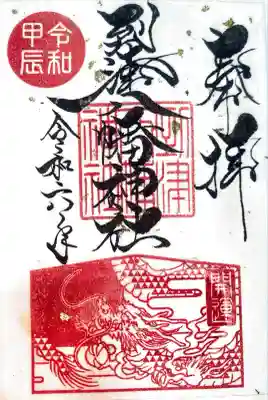 奉拝
八幡神社
令和
甲辰
令和六年
開運